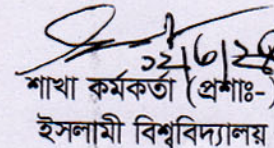 শাখা কর্মকর্তা (প্রশাঃ-)
ইসলামী বিশ্ববিদ্যালয়